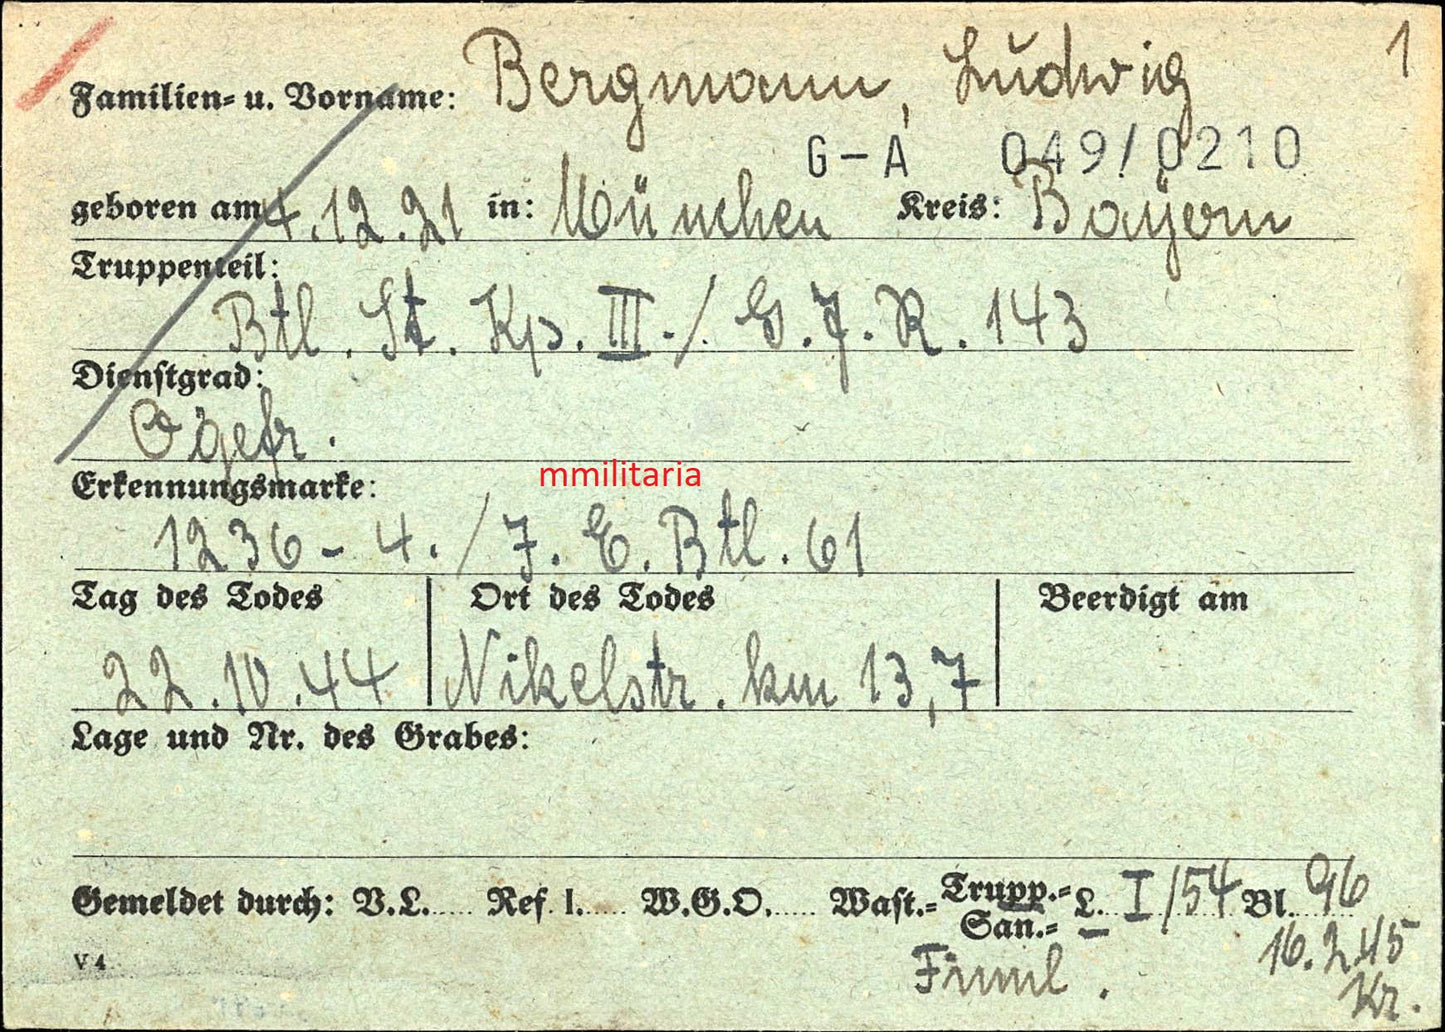 1
Familien- u. Vorname: Bergmann, Ludwig
G-A 049/0210
geboren am 4.12.21 in: München Kreis: Bayern
Truppenteil:
Btl. St. Kp. III./ G.J.R. 143
Dienstgrad:
Ogefr.
Erkennungsmarke:
mmilitaria
1236 - 4./J.E.Btl. 61
Tag des Todes Ort des Todes Beerdigt am
22.10.44 Nikelstr. km 13,7
Lage und Nr. des Grabes:
Gemeldet durch: V.L. Ref. I. W.G.O. Wast.= Trupp.= San.= L. I/54 Bl. 96
16.2.45
V 4
Kr.